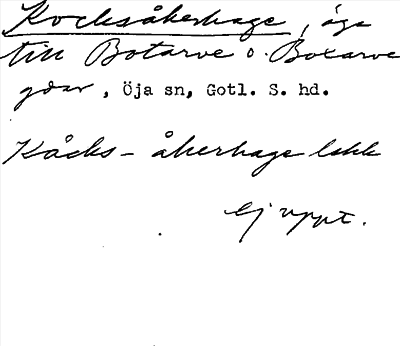 Kocksåkerhage, äga
till Botarve o. Boxarve
gdar, Öja sn, Gotl. S. hd.
Kåcks-åkerhage lokk
ej uppt.